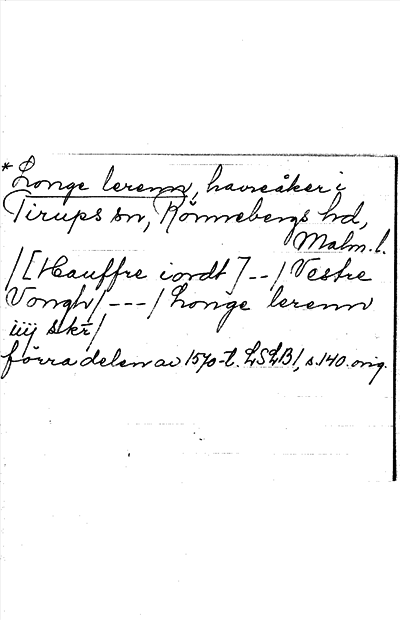 *Longe lerenn, havreåker i
Tirups sn, Rönnebergs hd,
Malm. l.
/[Hauffre iordt] -- / Vestre
Vongh/ --- / Longe lerenn
iiij skr̄/
förra delen av 1570-t. LSLB/, s. 140. orig.